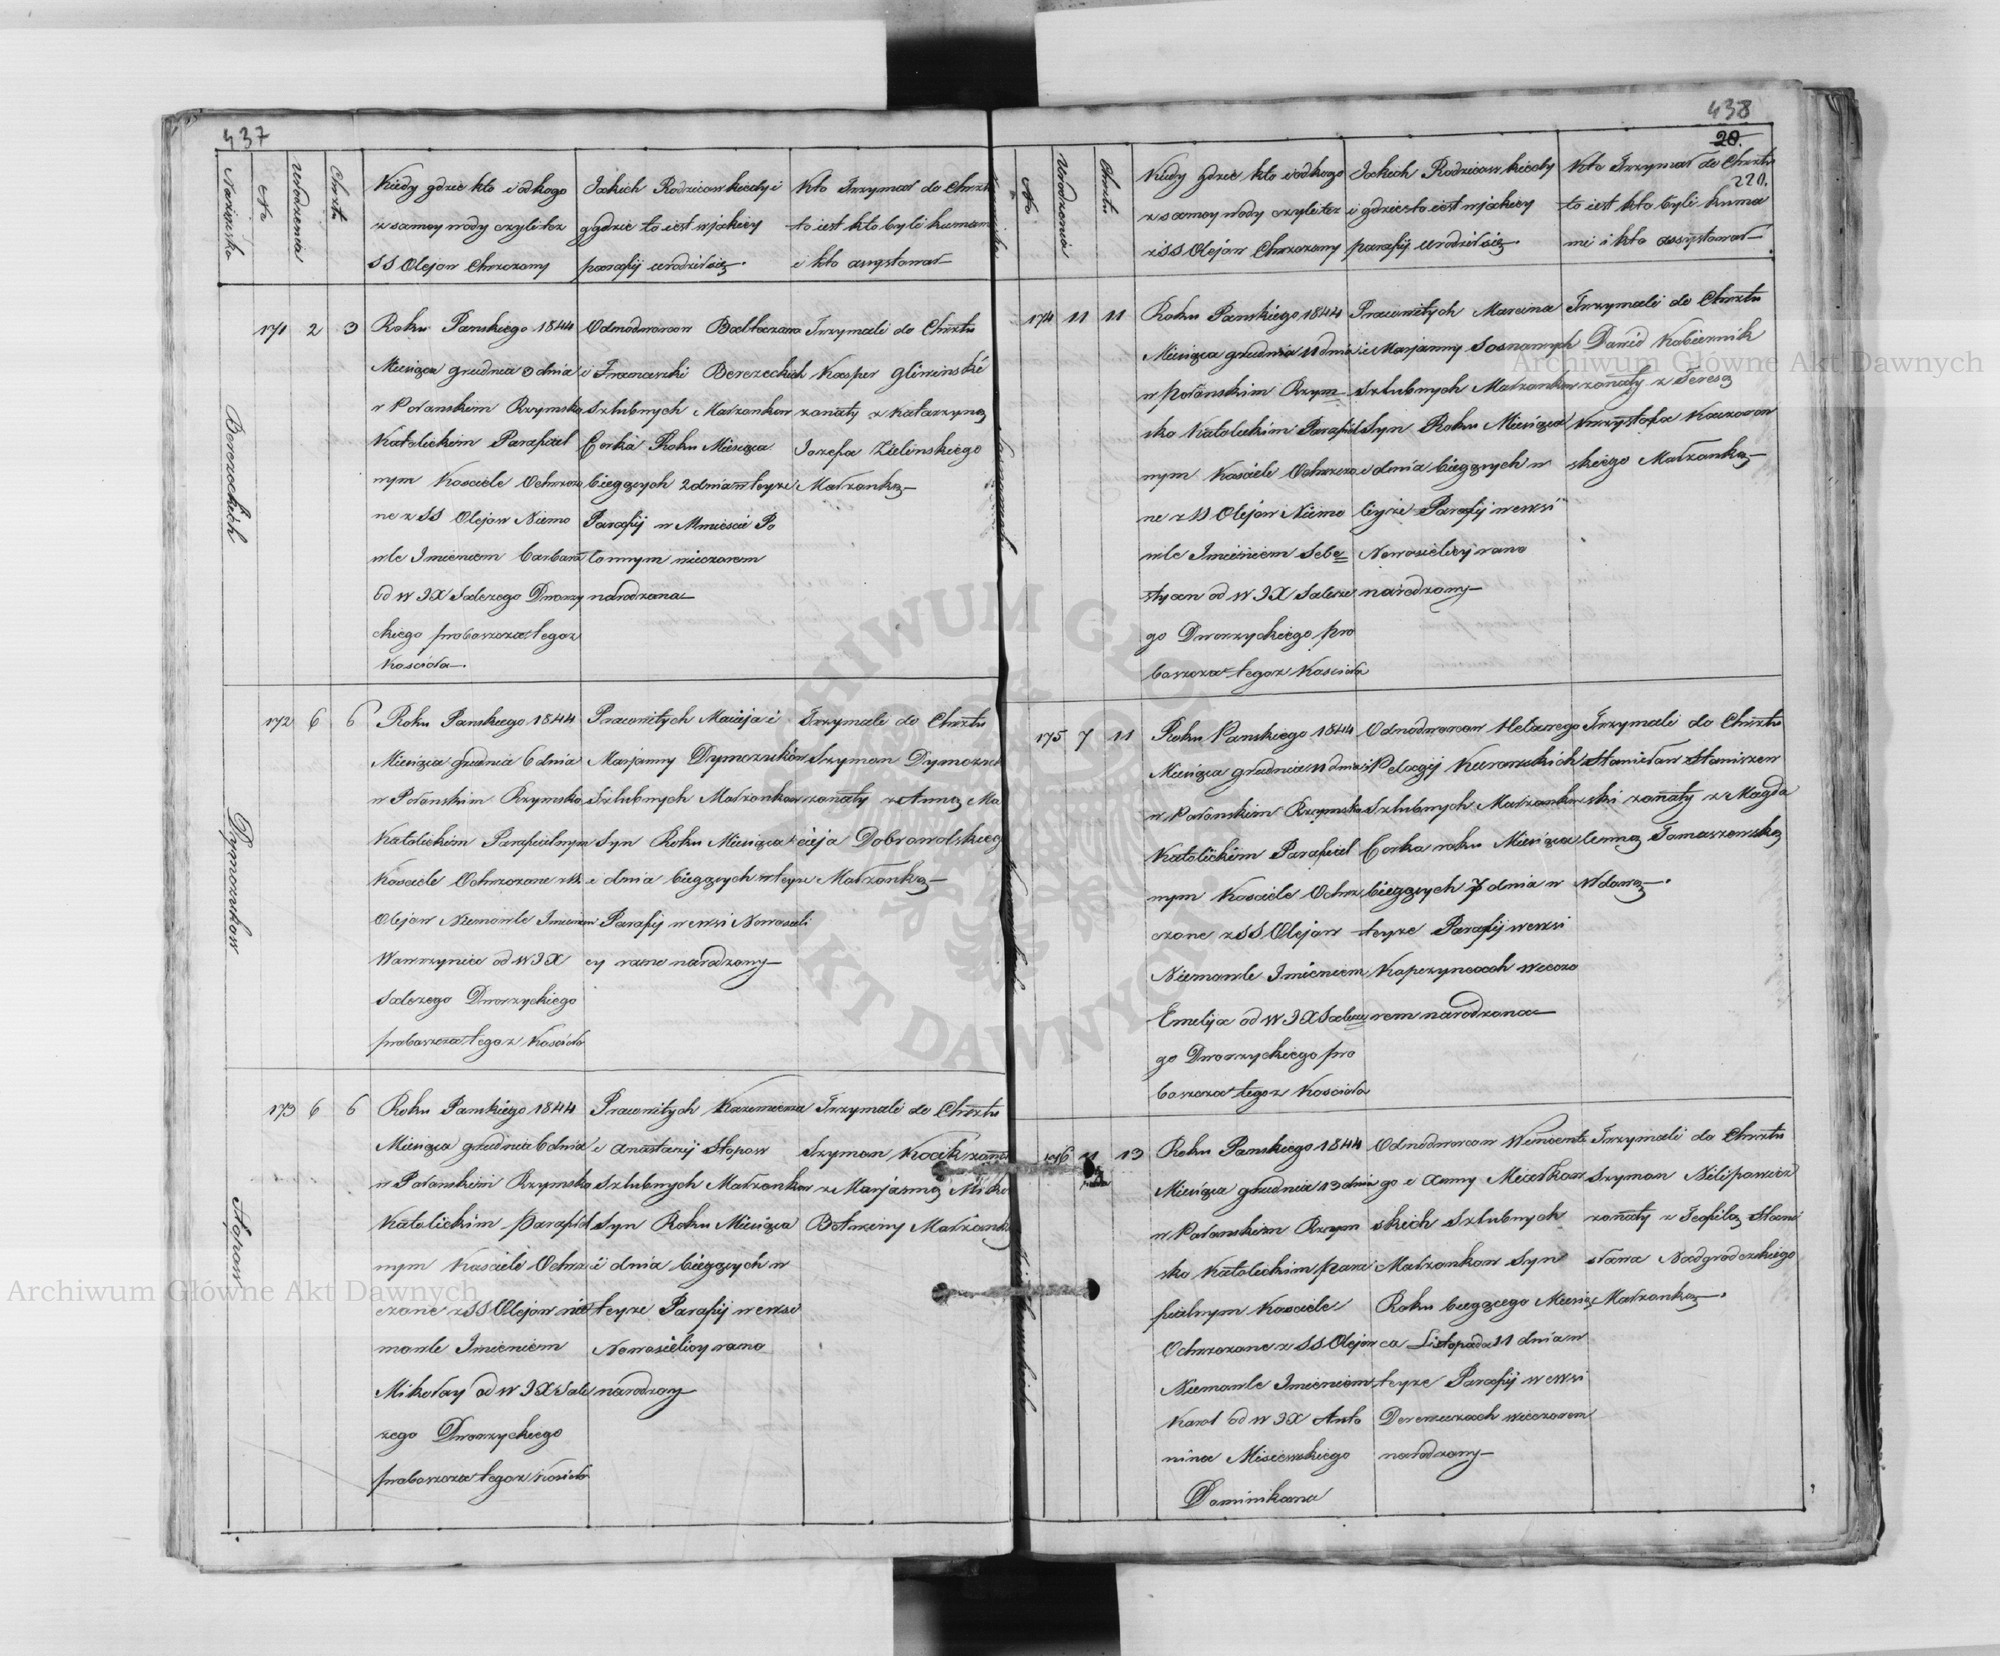 437
Nazwisko
No
Urodzenia
Chrztu
Kiedy gdzie kto i od kogo
z samey wody czyli też z
SS Olejow Chrzczony
Jakich Rodzicow kiedy i
gdzie to iest w jakiey
parafij urodził się.
Kto Trzymał do Chrztu
to iest kto byli kumami
i kto assystował
Berezeckich
171 2 3
Roku Panskiego 1844
Miesiąca grudnia 3 dnia
w Połanskim Rzymsko
Katolickim Parafial
nym Kosciele Ochrzczo
ne z SS Olejow Niemo
wle Imieniem Barbara
od W JX Salezego Dworzy
ckiego proboszcza tegoż
Kościoła.
Odnodworcow Baltazara
i Franciszki Berezeckich
Szlubnych Małżonkow
Corka Roku Miesiąca
bieggzych 2 dnia w teyże
Parafij w Mmieście Po
łonnym wieczorem
narodzona
Trzymali do Chrztu
Kasper Gliwinski
żonaty z Katarzyną
Jozefa Zielinskiego
Małżonką
Dymczukow
172 6 6
Roku Panskiego 1844
Miesiąca grudnia 6 dnia
w Połanskim Rzymsko
Katolickim Parafialnym
Kosciele Ochrzczone z SS
Olejow Niemowle Imieniem
Wawrzyniec od W JX
Salezego Dworzyckiego
proboszcza tegoż Kościoła
Pracowitych Macieja i
Marjanny Dymczuków
Szlubnych Małżonkow
Syn Roku Miesiąca
i dnia bieggzych w teyże
Parafij w ewsi Nowosieli
cy rano narodzony
Trzymali do Chrztu
Szymon Dymczuk
żonaty z Anną Ma
cieja Dobrowolskiego
Małżonką
Stopow
173 6 6
Roku Panskiego 1844
Miesiąca grudnia 6 dnia
w Połanskim Rzymsko
Katolickim Parafial
nym Kosciele Ochrz
czone z SS Olejow nie
mowle Imieniem
Mikołay od W JX Sale
zego Dworzyckiego
proboszcza tegoż Kościoła
Pracowitych Kazimierza
i Anastazij Stopow
Szlubnych Małżonkow
Syn Roku Miesiąca
i dnia bieggzych w
teyże Parafij w ewsi
Nowosielicy rano
narodzony
Trzymali do Chrztu
Szymon Kocik żonaty
z Marjanną Miko
Botwiny Małżonką
438
20.
220.
No
Urodzenia
Chrztu
Kiedy gdzie kto i od kogo
z samey wody czyli też
z SS Olejów Chrzczony
Jakich Rodzicow kiedy
i gdzie to iest w jakiey
parafij urodził się.
Kto Trzymał do Chrztu
to iest kto byli kuma
mi i kto assystował
174 11 11
Roku Panskiego 1844
Miesiąca grudnia 11 dnia
w Połanskim Rzym
sko Katolickim Parafial
nym Kosciele Ochrzczo
ne z SS Olejow Niemo
wle Imieniem Seba
styan od W JX Saleze
go Dworzyckiego pro
boszcza tegoż Kosciola
Pracowitych Marcina
i Marjanny Sosnowych
Szlubnych Małżonkow
Syn Roku Miesiąca
i dnia bieggzych w
teyże Parafij w ewsi
Nowosielicy rano
narodzony
Trzymali do Chrztu
Dawid Kobiernik
żonaty z Teresą
Krzysztofa Kaczorow
skiego Małżonką
175 7 11
Roku Panskiego 1844
Miesiąca grudnia 11 dnia
w Połanskim Rzymsko
Katolickim Parafial
nym Kosciele Ochrz
czone z SS Olejow
Niemowle Imieniem
Emelija od W JX Saleze
go Dworzyckiego pro
boszcza tegoż Kosciola
Odnodworcow Helarego
i Pelagij Kurowskich
Szlubnych Małżonkow
Corka roku Miesiąca
bieggzych 7 dnia w
teyże Parafij w ewsi
Kopczyncach wieczo
rem narodzona
Trzymali do Chrztu
Stanisław Staniszew
ski żonaty z Magda
leną Tomaszewską
Wdową.
176 11 13
Roku Panskiego 1844
Miesiąca grudnia 13 dnia
w Połanskim Rzym
sko Katolickim para
fialnym Kosciele
Ochrzczone z SS Olejow
Niemowle Imieniem
Karol od W JX Anto
nina Misiewskiego
Dominikana
Odnodworcow Wincente
go i Anny Mieczkow
skich Szlubnych
Małżonkow Syn
Roku bieggzego Miesią
ca Listopada 11 dnia w
teyże Parafij w ewsi
Derewiczach wieczorem
narodzony
Trzymali do Chrztu
Szymon Nilipowicz
żonaty z Teofilą Stani
sława Nadgrodzkiego
Małżonką.
Archiwum Główne Akt Dawnych
Archiwum Główne Akt Dawnych
ARCHIWUM GŁÓWNE AKT DAWNYCH